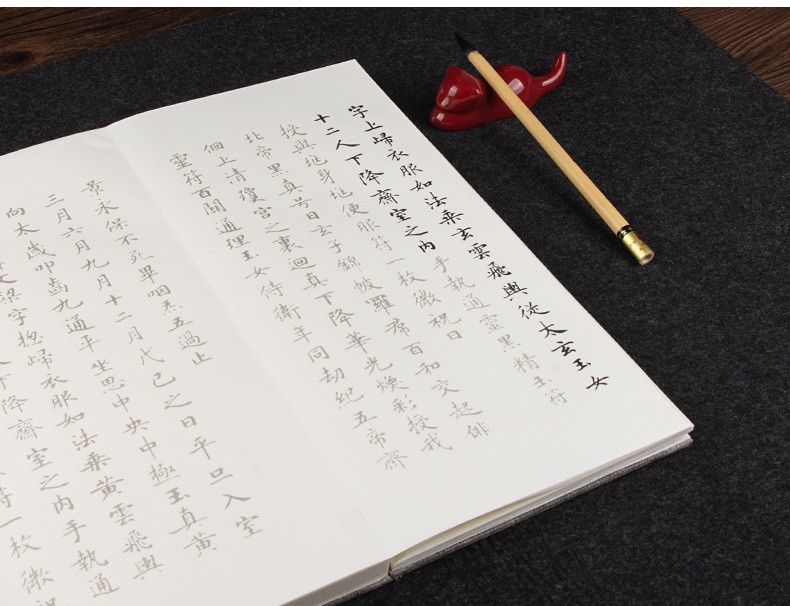 字上歸衣服如法乘玄雲飛輿從太玄玉女
十二人下降齋室之内手執通靈黑精玉符
授與兆身兆便服符一枚微祝曰
北帝黑真号曰玄子錦帔羅帬百和交起俳
佪上清瓊宮之裏迴真下降華光煥彩授我
靈符百關通理玉女侍衛年同劫紀五帝齊
景永保不死畢咽炁五過止
三月六月九月十二月戊己之日平旦入室
向太歲叩齒九通平坐思中央中極玉真黄
文梁字摠歸衣服如法乘黄雲飛輿
人下降齋室之内手執通
符一枚微祝